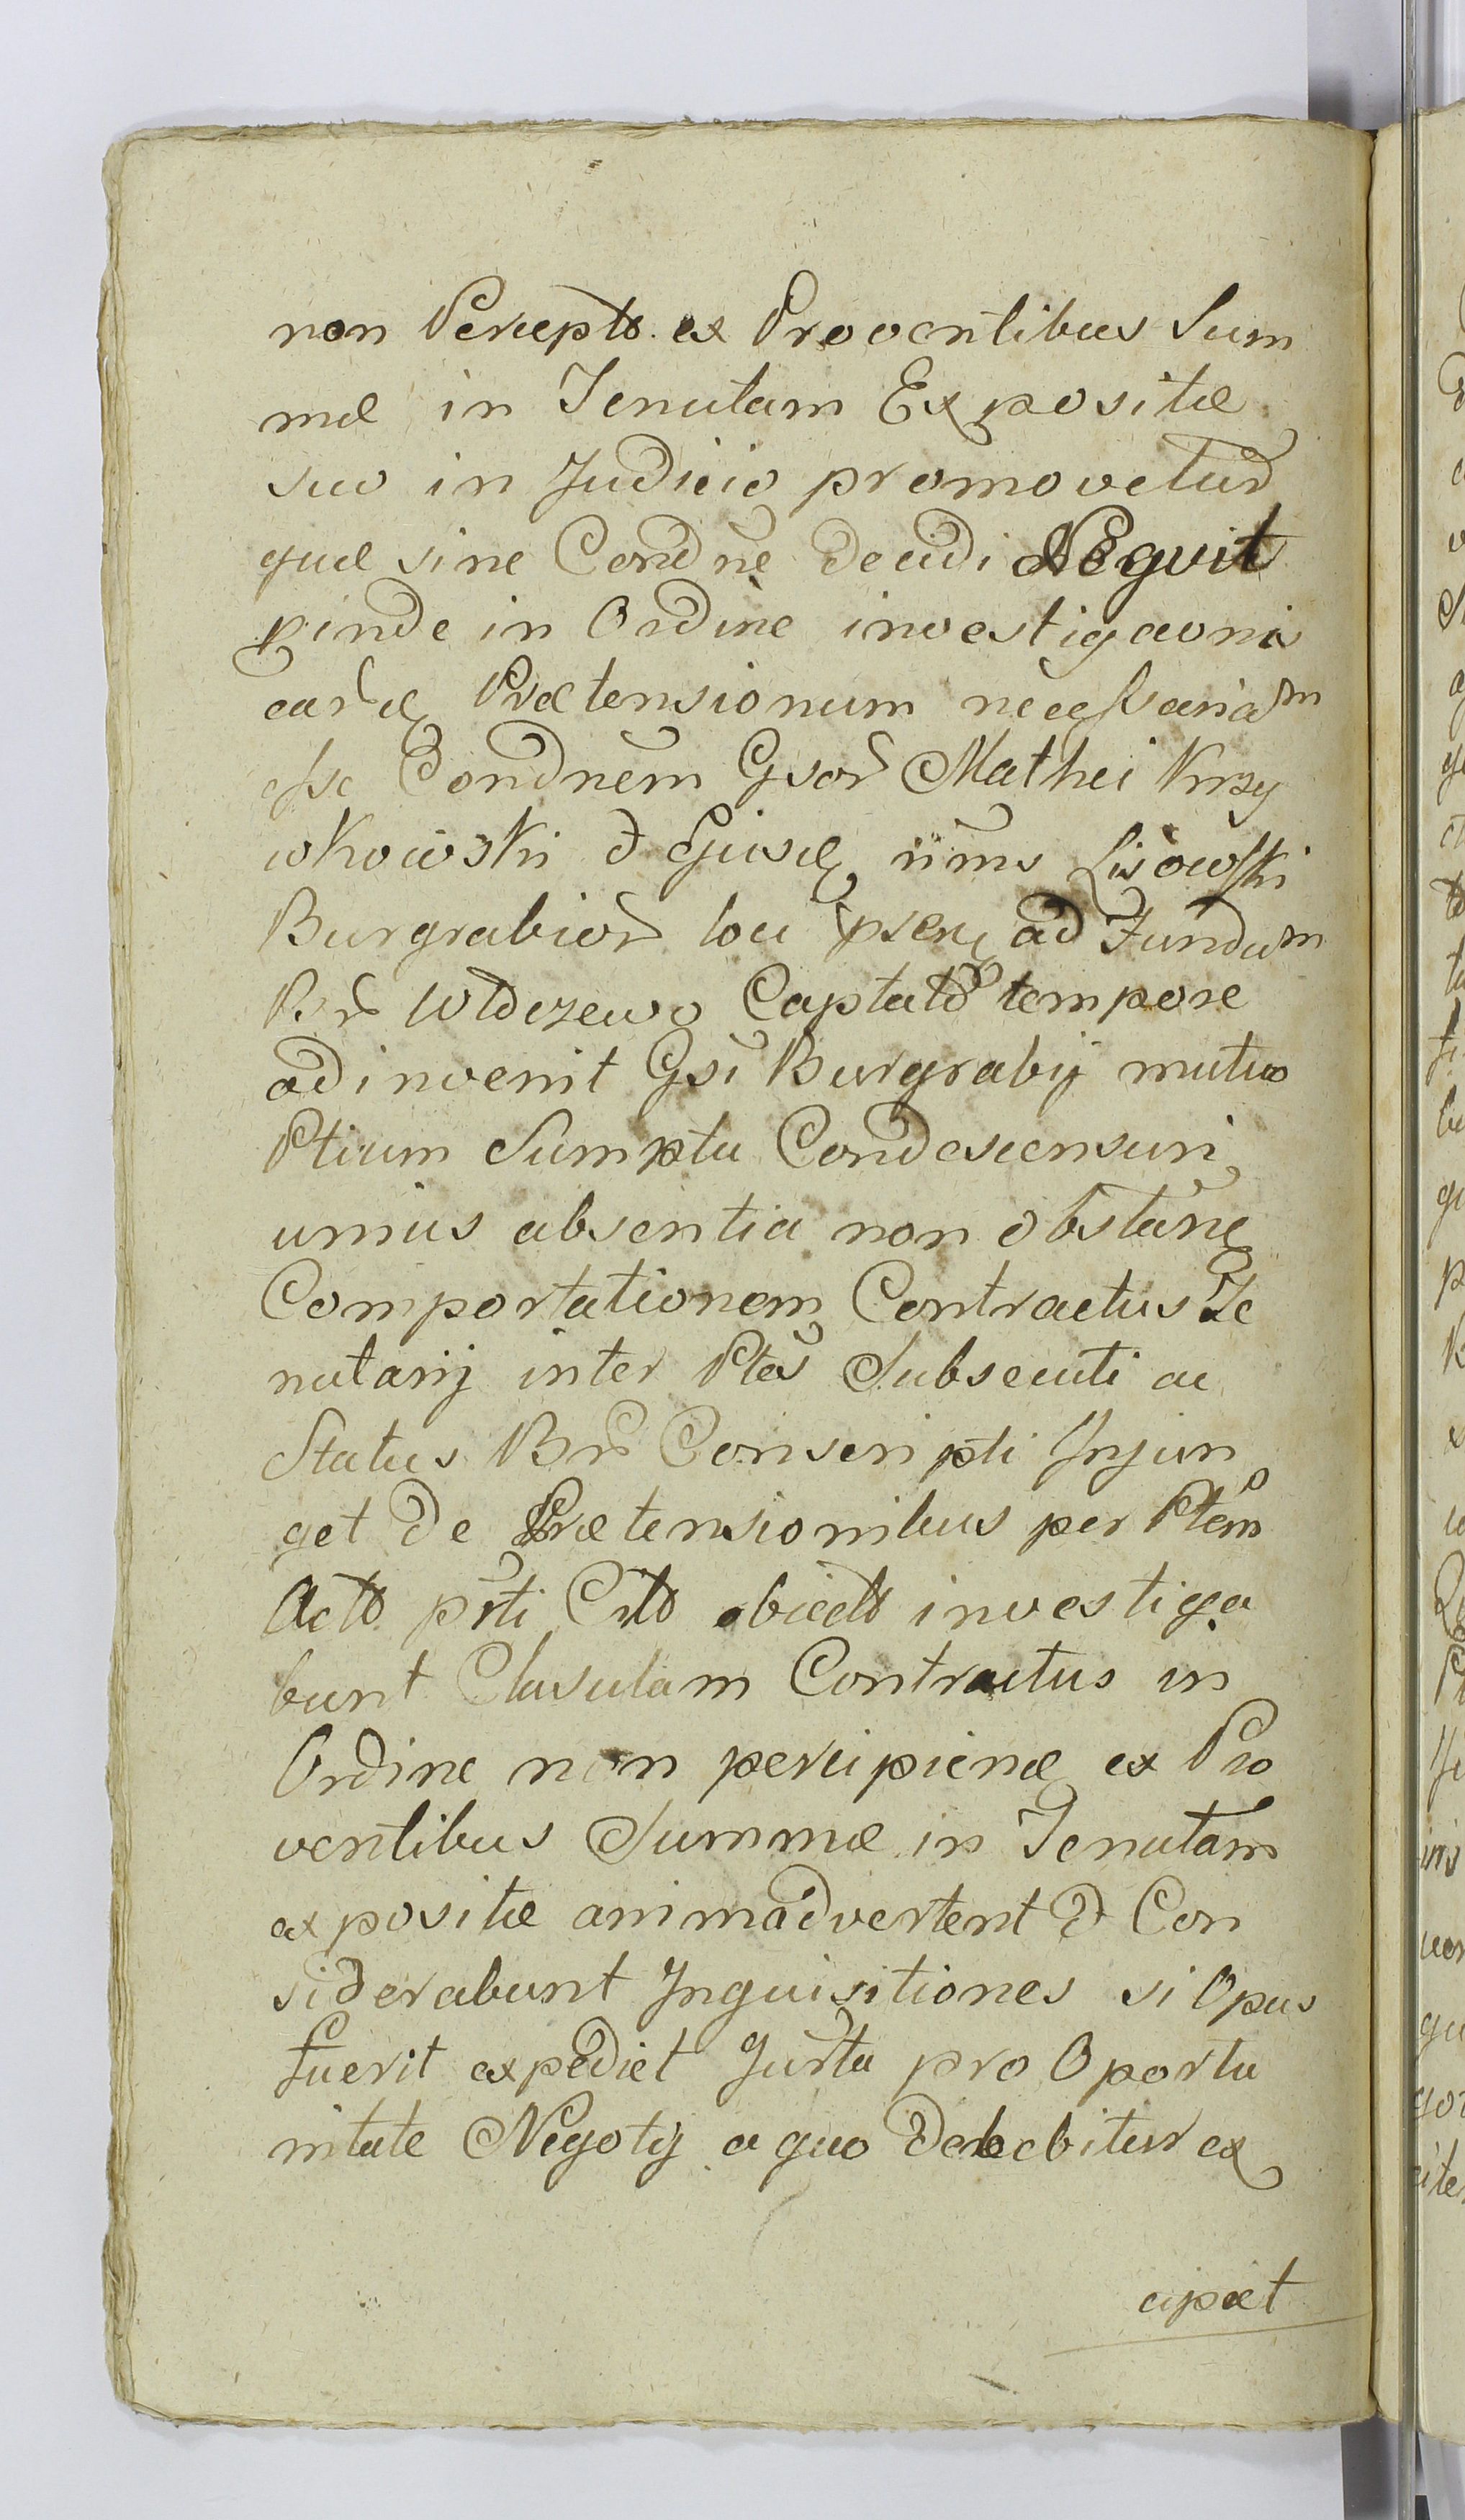 non Percepto ex Proventibus Sum
mæ in Tenutam Expositæ
suo in Judicio promovetur
quæ sine Condne Decidi Nequit
pinde in Ordine investigaonis
earq Prætensionum necessariam
esse Condnem Gsor Mathei Krzy
wkowski & Gjusq iims Lisowski
Burgrabior loci psenq ad Fundum
Br Wtdezewo Captato tempore
adinvenit Gsi Burgrabij mutuo
Ptium Sumptu Condescensuri
unius absentia non obstane
Comportationem Contractus Te
nutarij inter Ptes Subsecuti ac
Status Br Conscripti Injun
get De Prætensionibus per Ptem
Acto prti Cito obiecto investiga
bunt Clasulam Contractus in
Ordine non percipienæ ex Pro
ventibus Summæ in Tenutam
expositæ animadvertent & Con
siderabunt Inquisitiones si Opus
fuerit expediet Jurta pro Oportu
nitate Negotij a quo Debebitur ex
cipiet